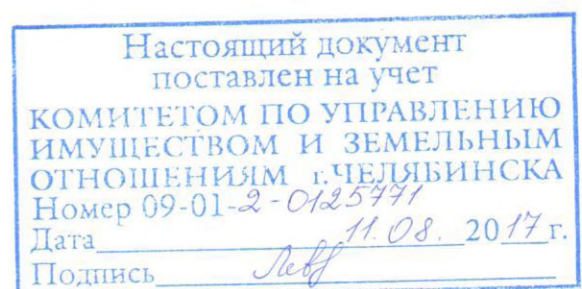 Настоящий документ
поставлен на учет
КОМИТЕТОМ ПО УПРАВЛЕНИЮ
ИМУЩЕСТВОМ И ЗЕМЕЛЬНЫМ
ОТНОШЕНИЯМ г.ЧЕЛЯБИНСКА
Номер 09-01-2-0125771
Дата 11.08. 2017 г.
Подпись